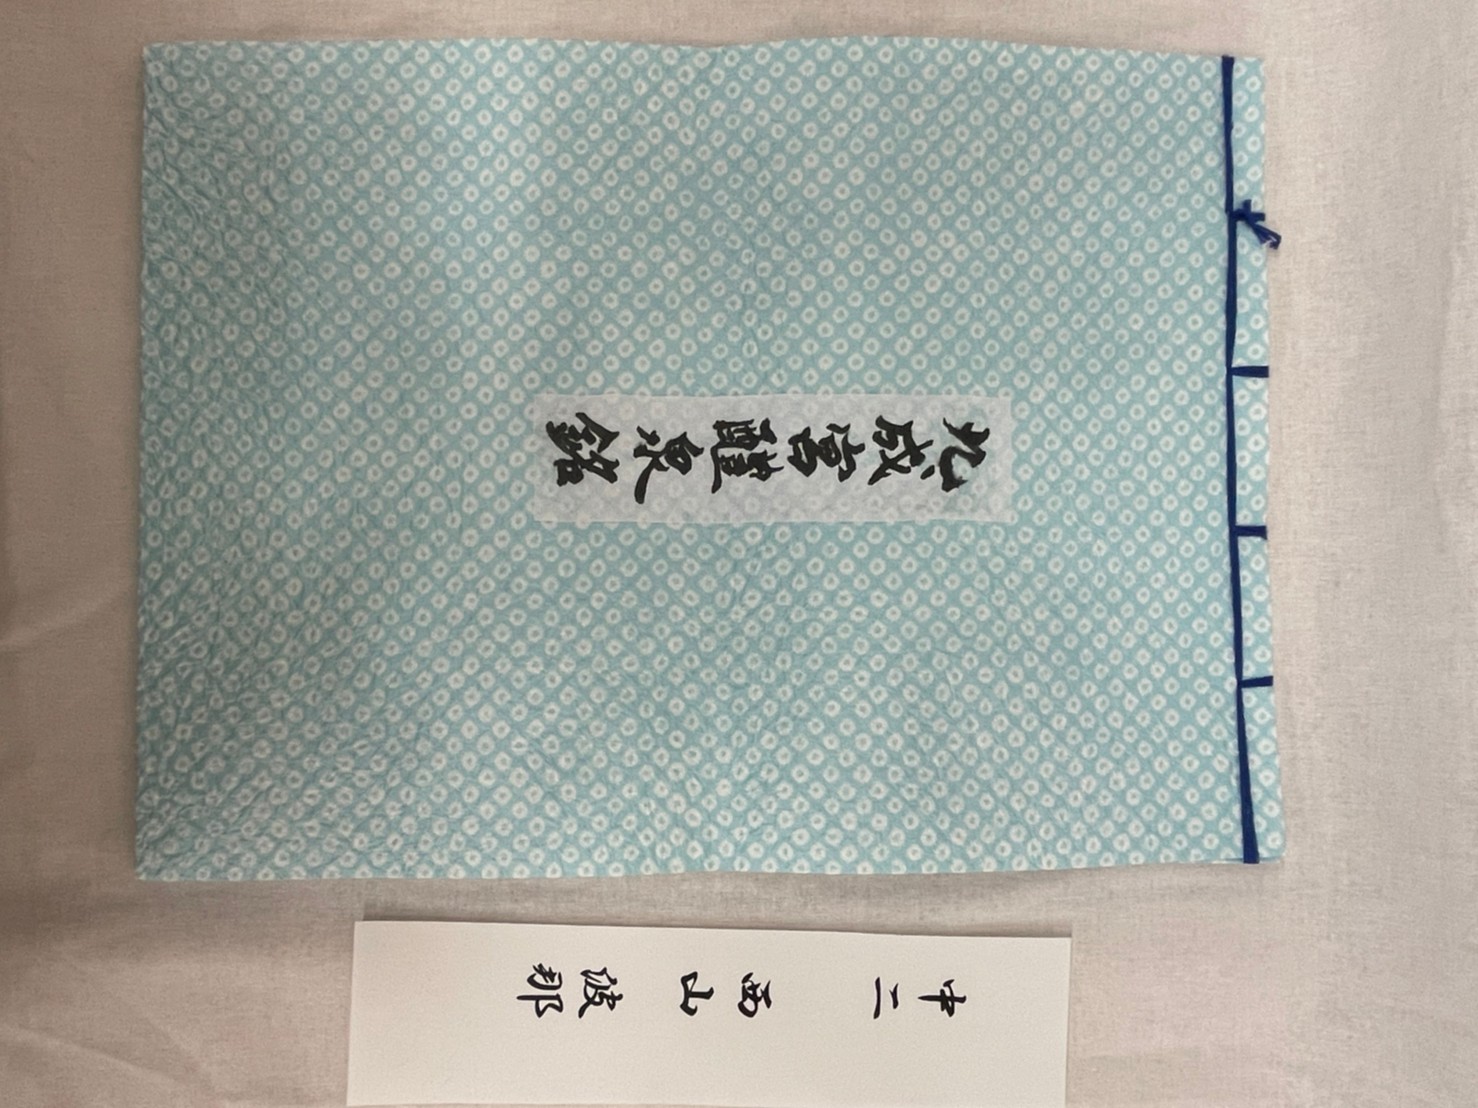 九成宮醴泉銘
中二 西山 波那